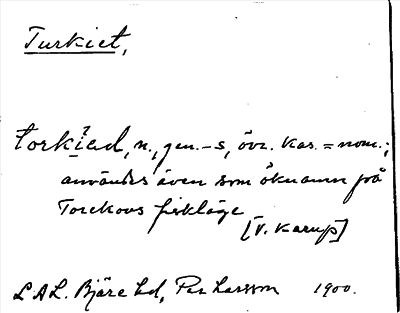 Turkiet,
torkied, n., gen. -s, övr. kas. = nom.;
användes även som öknamn på
Torekovs fiskläge
[V. Karup]
LAL. Bjäre hd, Per Larsson 1900.